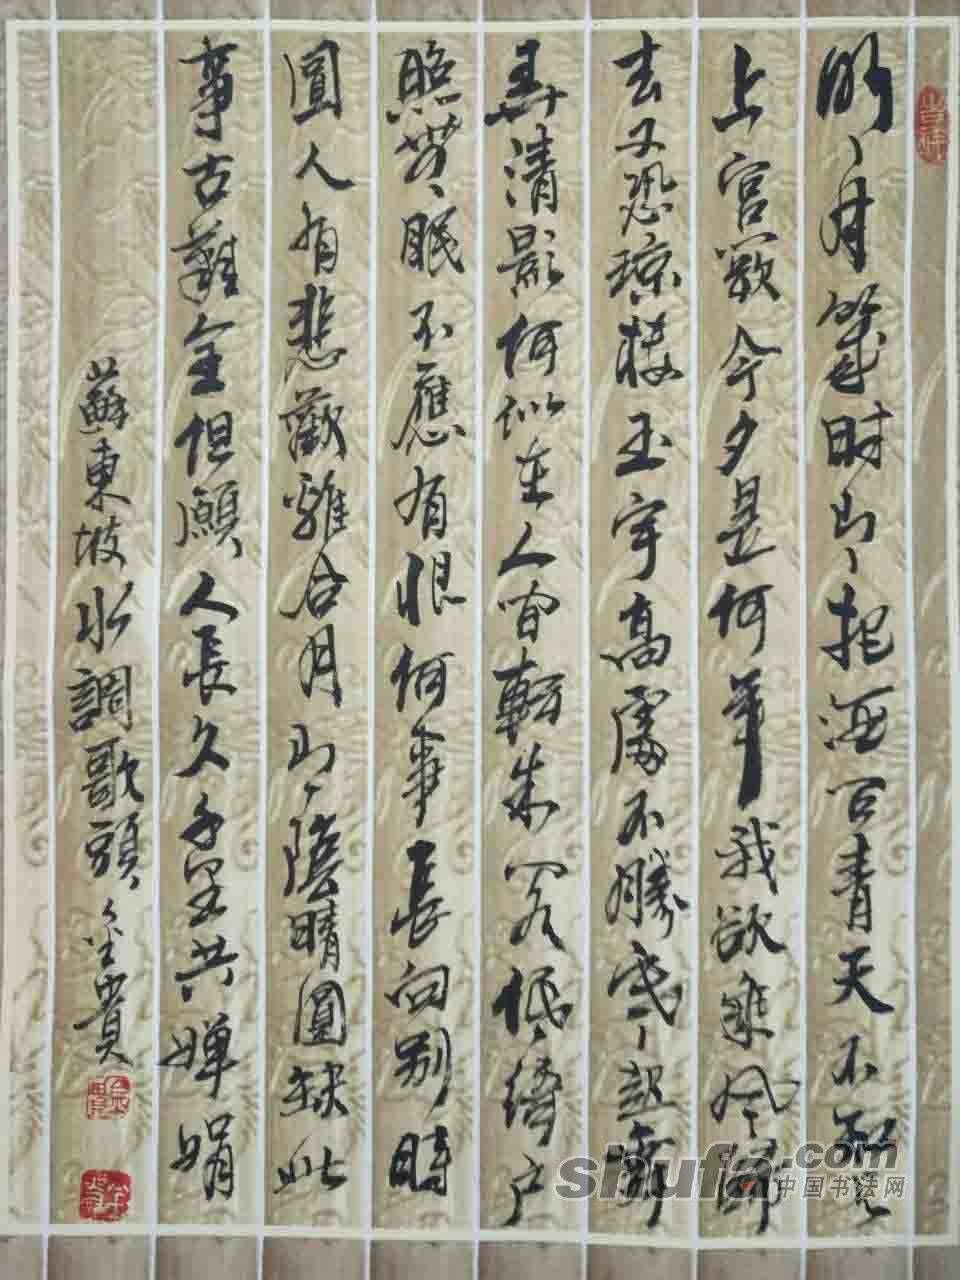 吉祥
明月幾時有把酒问青天不知天
上宫闕今夕是何年我欲乘风歸
去又恐琼楼玉宇高處不勝寒起舞
弄清影何似在人间轉朱阁低绮户
照無眠不應有恨何事長向别時
圓人有悲歡離合月有陰晴圓缺此
事古難全但願人長久千里共婵娟
蘇東坡水調歌頭金貴
shufa.com
中国书法网